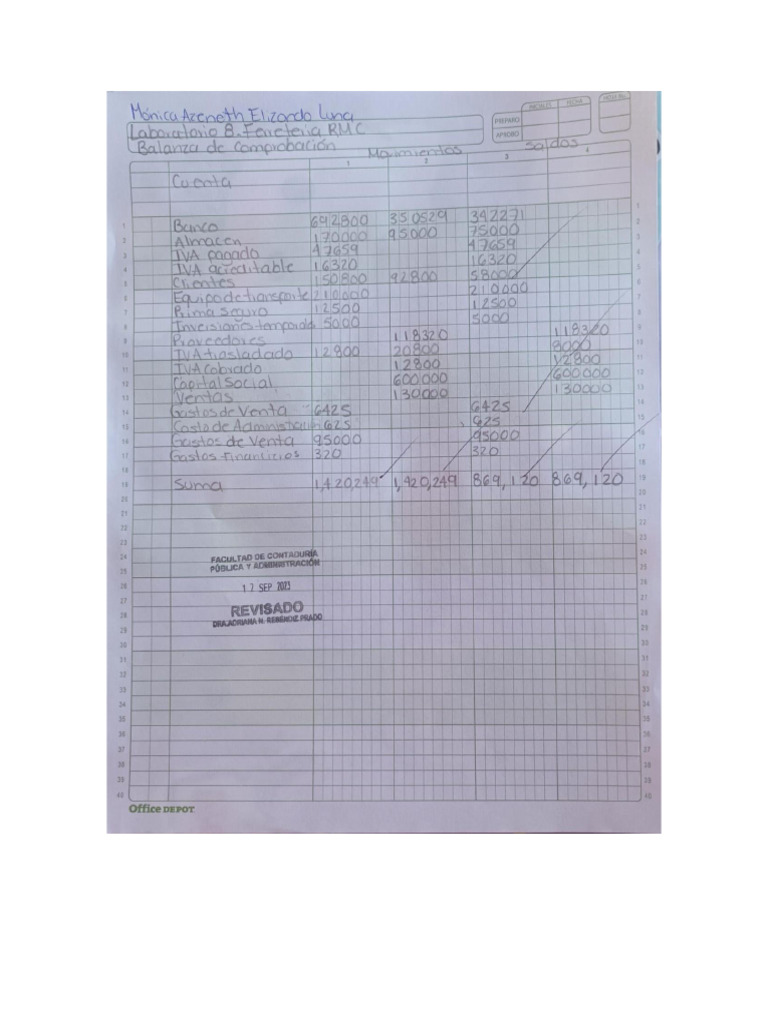 Mónica Azeneth Elizondo Luna
Laboratorio 8. Ferretería RMC
Balanza de Comprobación
INICIALES FECHA
PREPARO
APROBO
Movimientos Saldos
1 2 3 4
Cuenta
1 Banco 692800 350529 342271
2 Almacen 170000 95000 75000
3 IVA pagado 47659 47659
4 IVA acreditable 16320 16320
5 Clientes 150800 92800 58000
6 Equipo de transporte 210000 210000
7 Prima seguro 12500 12500
8 Inversiones temporales 5000 5000
9 Proveedores 118320 118320
10 IVA trasladado 12800 20800 8000
11 IVA Cobrado 12800 12800
12 Capital Social 600000 600000
13 Ventas 130000 130000
14 Gastos de Venta 6425 6425
15 Costo de Administración 625 625
16 Gastos de Venta 95000 95000
17 Gastos Financieros 320 320
18
19 Suma 1,420,249 1,420,249 869,120 869,120
20
21
22
23
24
FACULTAD DE CONTADURÍA
PÚBLICA Y ADMINISTRACIÓN
25
26
12 SEP 2023
27
REVISADO
28
DRA.ADRIANA N. RESÉNDIZ PRADO
29
30
31
32
33
34
35
36
37
38
39
40
Office DEPOT